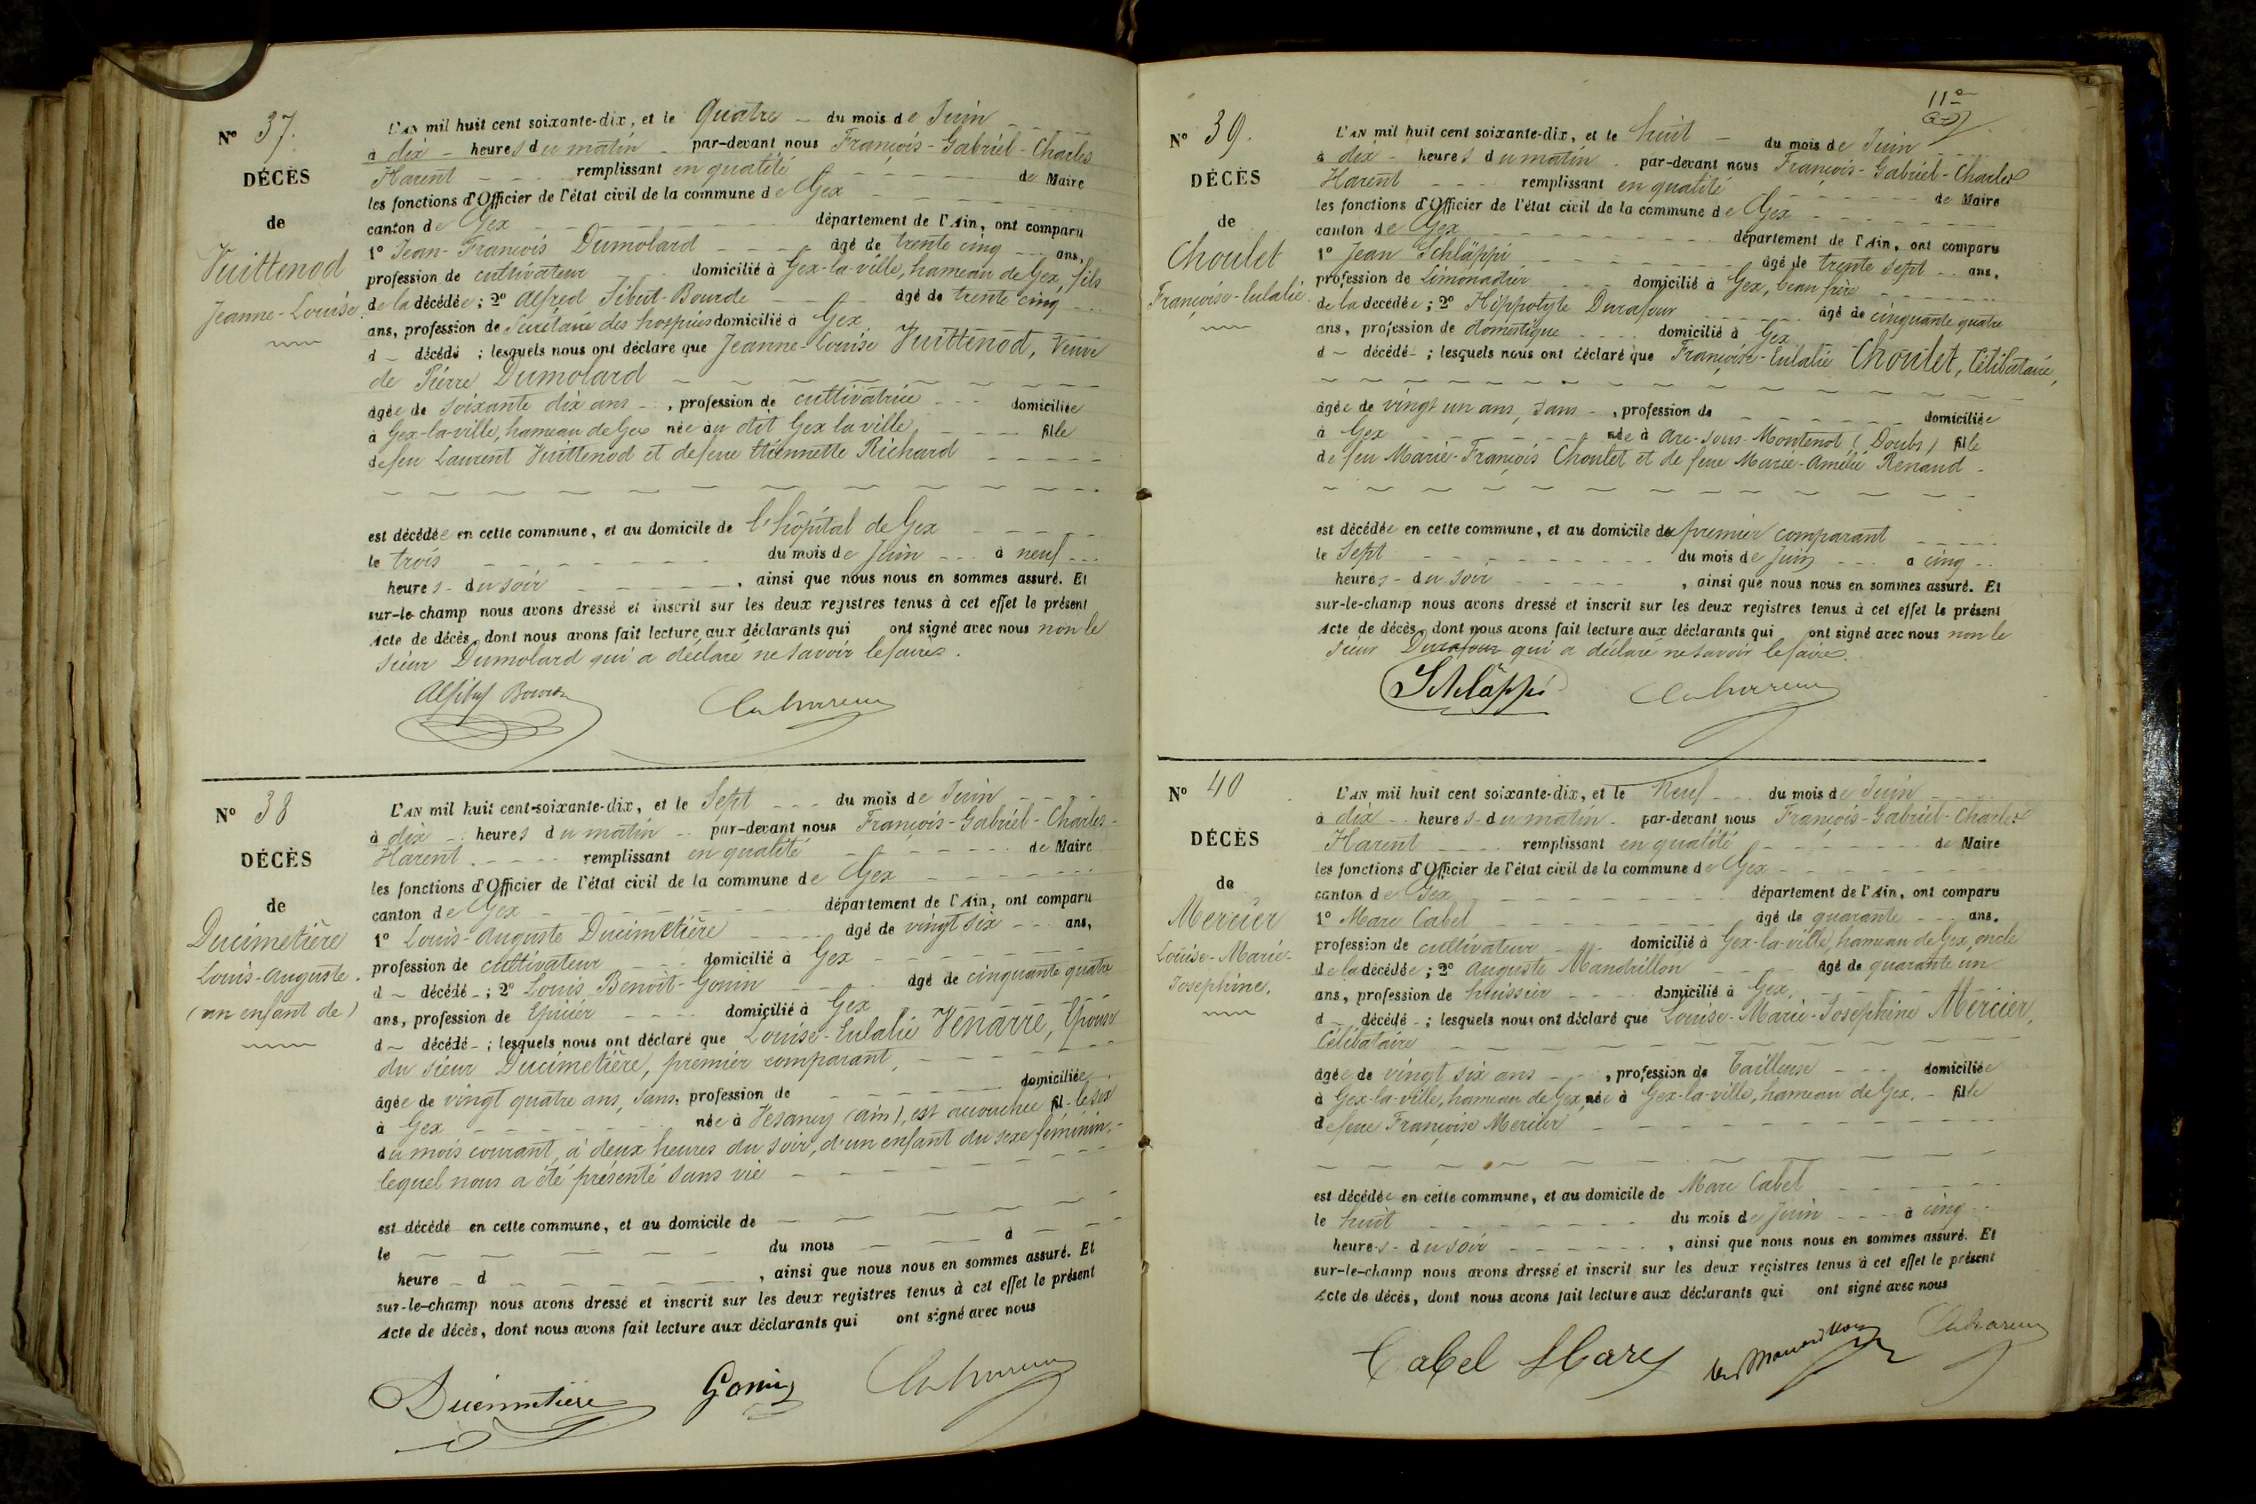 N° 37.
DÉCÈS
de
Vuittenod
Jeanne-Louise.
L'AN mil huit cent soixante-dix, et le Quatre du mois de Juin
à dix heures du matin par-devant nous François-Gabriel-Charles
Harent remplissant en qualité de Maire
les fonctions d'Officier de l'état civil de la commune de Gex
canton de Gex département de l'Ain, ont comparu
1° Jean-François Dumolard âgé de trente cinq ans,
profession de cultivateur domicilié à Gex-la-ville, hameau de Gex, fils
de la décédée ; 2° Alfred Sibut-Bourde âgé de trente cinq
ans, profession de Secrétaire des hospices domicilié à Gex
d décédé ; lesquels nous ont déclaré que Jeanne-Louise Vuittenod, Veuve
de Pierre Dumolard
âgée de soixante dix ans, profession de cultivatrice domiciliée
à Gex-la-ville, hameau de Gex née au dit Gex la ville, fille
de feu Laurent Vuittenod et de feue Etiennette Richard
est décédée en cette commune, et au domicile de l'hôpital de Gex
le trois du mois de Juin à neuf
heures du soir, ainsi que nous nous en sommes assuré. Et
sur-le-champ nous avons dressé et inscrit sur les deux registres tenus à cet effet le présent
Acte de décès, dont nous avons fait lecture aux déclarants qui ont signé avec nous non le
sieur Dumolard qui a déclaré ne savoir le faire.
N° 38
DÉCÈS
de
Ducimetière
Louis-Auguste.
(un enfant de)
L'AN mil huit cent-soixante-dix, et le Sept du mois de Juin
à dix heures du matin par-devant nous François-Gabriel-Charles
Harent remplissant en qualité de Maire
les fonctions d'Officier de l'état civil de la commune de Gex
canton de Gex département de l'Ain, ont comparu
1° Louis-Auguste Ducimetière âgé de vingt six ans,
profession de cultivateur domicilié à Gex
d décédé ; 2° Louis Benoit-Gonin âgé de cinquante quatre
ans, profession de Epicier domicilié à Gex
d décédé ; lesquels nous ont déclaré que Louise-Eulalie Venarre, Epouse
du sieur Ducimetière, premier comparant,
âgée de vingt quatre ans, sans profession de domiciliée
à Gex née à Vesancy (ain), est accouchée fil le six
du mois courant, à deux heures du soir, d'un enfant du sexe féminin,
lequel nous a été présenté sans vie
est décédé en cette commune, et au domicile de
le du mois à
heure d, ainsi que nous nous en sommes assuré. Et
sur-le-champ nous avons dressé et inscrit sur les deux registres tenus à cet effet le présent
Acte de décès, dont nous avons fait lecture aux déclarants qui ont signé avec nous
Ducimetière Gonin
11e
N° 39.
DÉCÈS
de
Choulet
Françoise-Eulalie
L'AN mil huit cent soixante-dix, et le huit du mois de Juin
à dix heures du matin par-devant nous François-Gabriel-Charles
Harent remplissant en qualité de Maire
les fonctions d'Officier de l'état civil de la commune de Gex
canton de Gex département de l'Ain, ont comparu
1° Jean Schläppi âgé de trente sept ans,
profession de Limonadier domicilié à Gex, beau frère
de la décédée ; 2° Hippolyte Durafour âgé de cinquante quatre
ans, profession de domestique domicilié à Gex
d décédé ; lesquels nous ont déclaré que Françoise-Eulalie Choulet, Célibataire,
âgée de vingt un ans, sans, profession de domiciliée
à Gex née à Arc-sous-Montenot (Doubs) fille
de feu Marie-François Choulet et de feue Marie-Amélie Renaud
est décédée en cette commune, et au domicile du premier comparant
le Sept du mois de Juin à cinq
heures du soir, ainsi que nous nous en sommes assuré. Et
sur-le-champ nous avons dressé et inscrit sur les deux registres tenus à cet effet le présent
Acte de décès, dont nous avons fait lecture aux déclarants qui ont signé avec nous non le
sieur Durafour qui a déclaré ne savoir le faire.
Schläppi
N° 40
DÉCÈS
de
Mercier
Louise-Marie-
Josephine.
L'AN mil huit cent soixante-dix, et le Neuf du mois de Juin
à dix heures du matin par-devant nous François-Gabriel-Charles
Harent remplissant en qualité de Maire
les fonctions d'Officier de l'état civil de la commune de Gex
canton de Gex département de l'Ain, ont comparu
1° Marc Cabel âgé de quarante ans,
profession de cultivateur domicilié à Gex-la-ville, hameau de Gex, oncle
de la décédée ; 2° Auguste Mandrillon âgé de quarante un
ans, profession de huissier domicilié à Gex,
d décédé ; lesquels nous ont déclaré que Louise-Marie-Josephine Mercier,
Célibataire
âgée de vingt six ans, profession de Tailleuse domiciliée
à Gex-la-ville, hameau de Gex, née à Gex-la-ville, hameau de Gex, fille
de feue Françoise Mercier
est décédée en cette commune, et au domicile de Marc Cabel
le huit du mois de Juin à cinq
heures du soir, ainsi que nous nous en sommes assuré. Et
sur-le-champ nous avons dressé et inscrit sur les deux registres tenus à cet effet le présent
Acte de décès, dont nous avons fait lecture aux déclarants qui ont signé avec nous
Cabel Marc